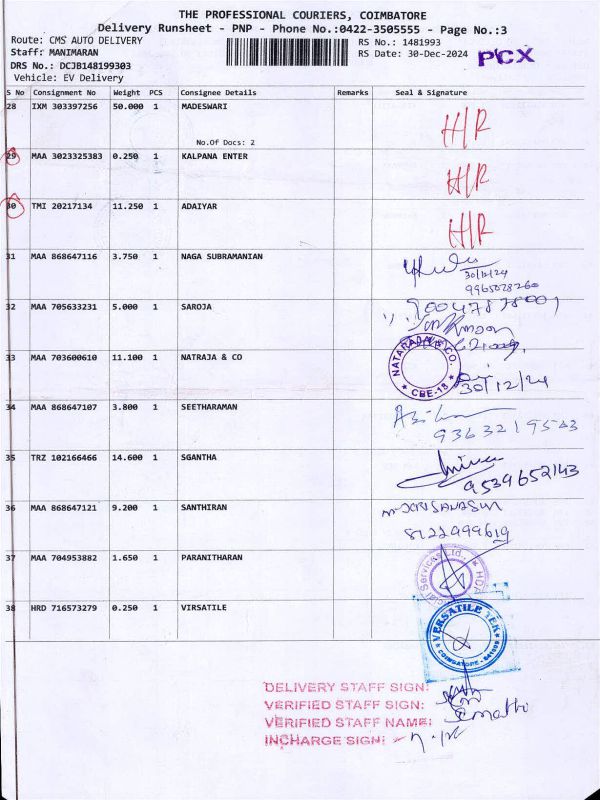 THE PROFESSIONAL COURIERS, COIMBATORE
Delivery Runsheet - PNP - Phone No.:0422-3505555 - Page No.:3
Route: CMS AUTO DELIVERY
RS No.: 1481993
Staff: MANIMARAN
RS Date: 30-Dec-2024
PCX
DRS No.: DCJB148199303
Vehicle: EV Delivery
S No Consignment No Weight PCS Consignee Details Remarks Seal & Signature
28 IXM 303397256 50.000 1 MADESWARI
No.Of Docs: 2
H/R
29 MAA 3023325383 0.250 1 KALPANA ENTER
H/R
30 TMI 20217134 11.250 1 ADAIYAR
H/R
31 MAA 868647116 3.750 1 NAGA SUBRAMANIAN
30/12/24
9965028260
32 MAA 705633231 5.000 1 SAROJA
33 MAA 703600610 11.100 1 NATRAJA & CO
NATARAJA & CO.
CBE-18
30/12/24
34 MAA 868647107 3.800 1 SEETHARAMAN
35 TRZ 102166466 14.600 1 SGANTHA
9539652143
36 MAA 868647121 9.200 1 SANTHIRAN
8122999619
37 MAA 704953882 1.650 1 PARANITHARAN
Services Ltd.,
38 HRD 716573279 0.250 1 VIRSATILE
VERSATILE TEK
DELIVERY STAFF SIGN:
VERIFIED STAFF SIGN:
VERIFIED STAFF NAME:
INCHARGE SIGN: